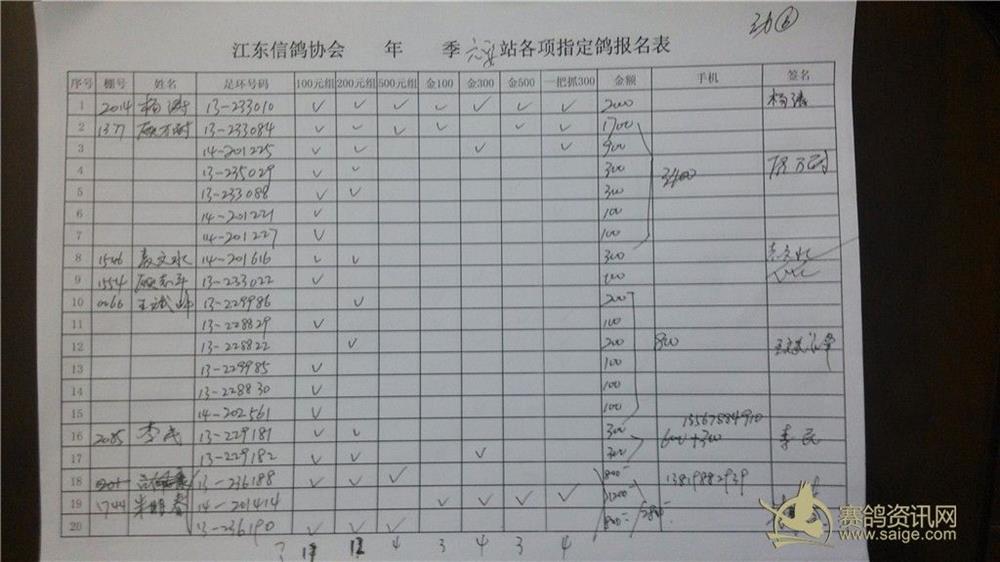 江东信鸽协会 年 季 站各项指定鸽报名表
序号 棚号 姓名 足环号码 100元组 200元组 500元组 金100 金300 金500 一把抓300 金额 手机 签名
1 2014 杨涛 13-233010 ✓ ✓ ✓ ✓ ✓ ✓ ✓ 2000 杨涛
2 1377 13-233084 ✓ ✓ ✓ ✓ ✓ ✓ 1700
3 14-201225 ✓ ✓ ✓ ✓ 900
4 13-235029 ✓ ✓ 300 3400
5 13-233088 ✓ ✓ 300
6 14-201221 ✓ 100
7 14-201227 ✓ 100
8 1546 14-201616 ✓ ✓ 300
9 1554 13-233022 ✓ 100
10 0266 13-229986 ✓ 200
11 13-228829 ✓ 100
12 13-228822 ✓ 200 800
13 13-229985 ✓ 100
14 13-228830 ✓ 100
15 14-202561 ✓ 100
16 2085 李民 13-229181 ✓ ✓ 300 13567884910 李民
17 13-229182 ✓ ✓ ✓ 600+300
18 13-236188 ✓ ✓ ✓ 800 13819882939
19 1744 朱明春 14-201414 ✓ ✓ ✓ ✓ 1200
20 13-236190 ✓ ✓ ✓ 800
12 4 3 4 3 4
赛鸽资讯网
www.saige.com